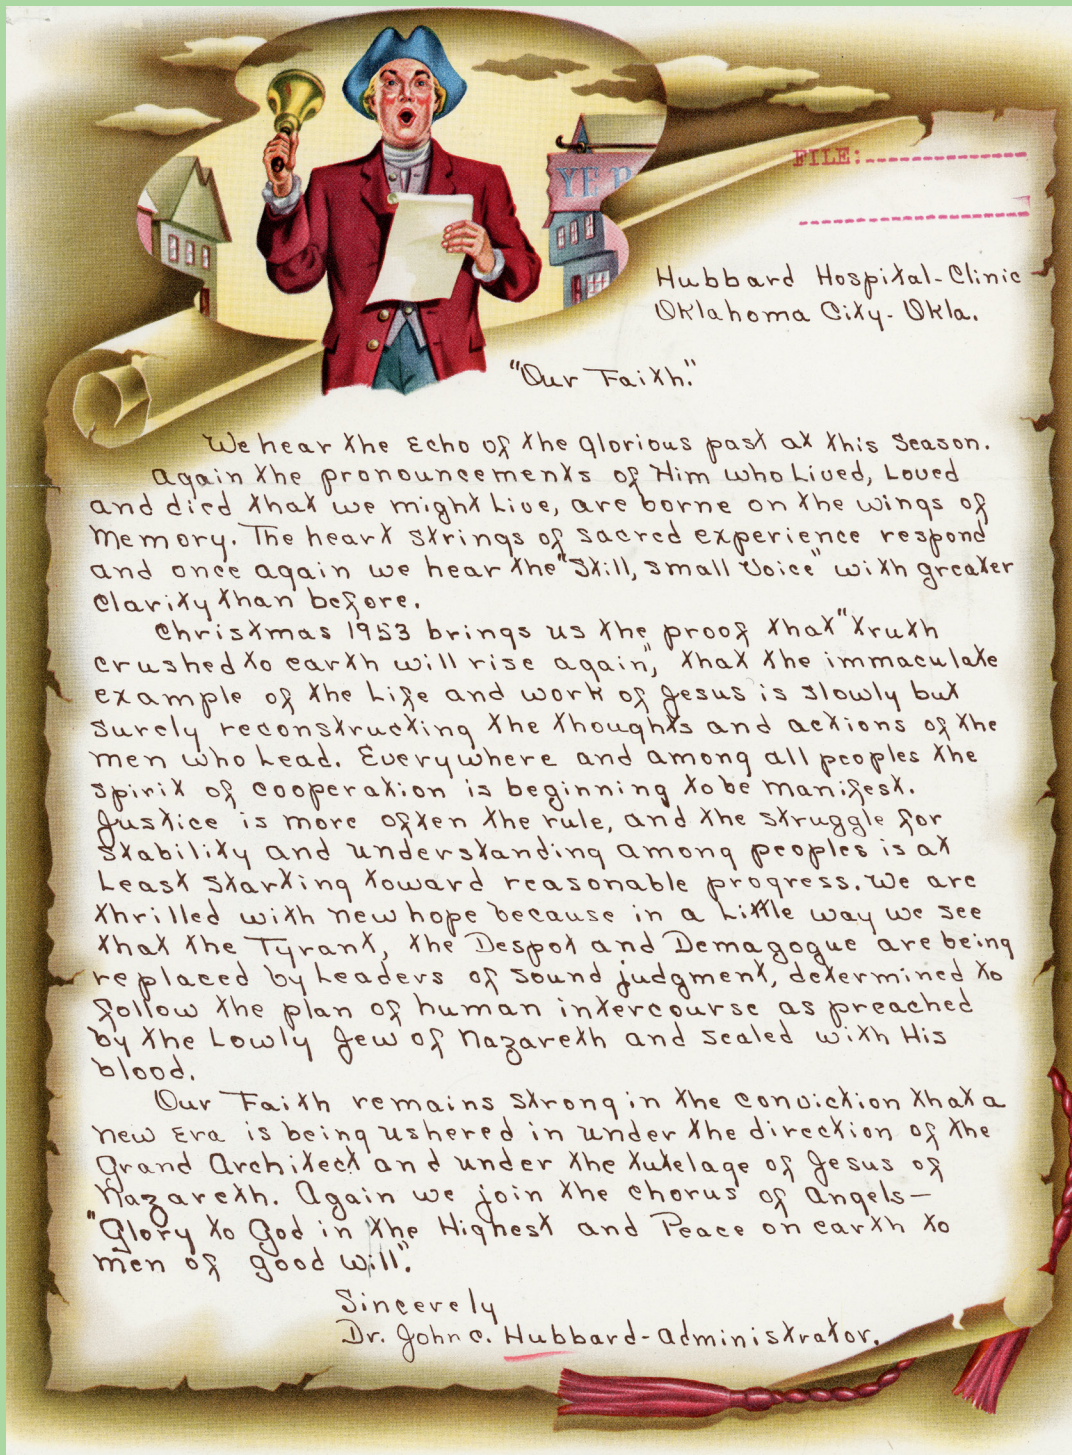 FILE:
YE P
Hubbard Hospital-Clinic
Oklahoma City- Okla.
"Our Faith."
We hear the Echo of the glorious past at this Season.
Again the pronouncements of Him who Lived, Loved
and died that we might Live, are borne on the wings of
Memory. The heart strings of sacred experience respond
and once again we hear the "Still, small Voice" with greater
Clarity than before.
Christmas 1953 brings us the proof that "truth
crushed to earth will rise again," that the immaculate
example of the Life and work of Jesus is slowly but
surely reconstructing the thoughts and actions of the
men who Lead. Everywhere and among all peoples the
spirit of cooperation is beginning to be manifest.
Justice is more often the rule, and the struggle for
stability and understanding among peoples is at
Least starting toward reasonable progress. We are
thrilled with new hope because in a Little way we see
that the Tyrant, the Despot and Demagogue are being
replaced by Leaders of sound judgment, determined to
follow the plan of human intercourse as preached
by the Lowly Jew of Nazareth and sealed with His
blood.
Our Faith remains strong in the conviction that a
new Era is being ushered in under the direction of the
Grand Architect and under the tutelage of Jesus of
Nazareth. Again we join the chorus of Angels—
"Glory to God in the Highest and Peace on earth to
men of good will".
Sincerely
Dr. John C. Hubbard-Administrator.